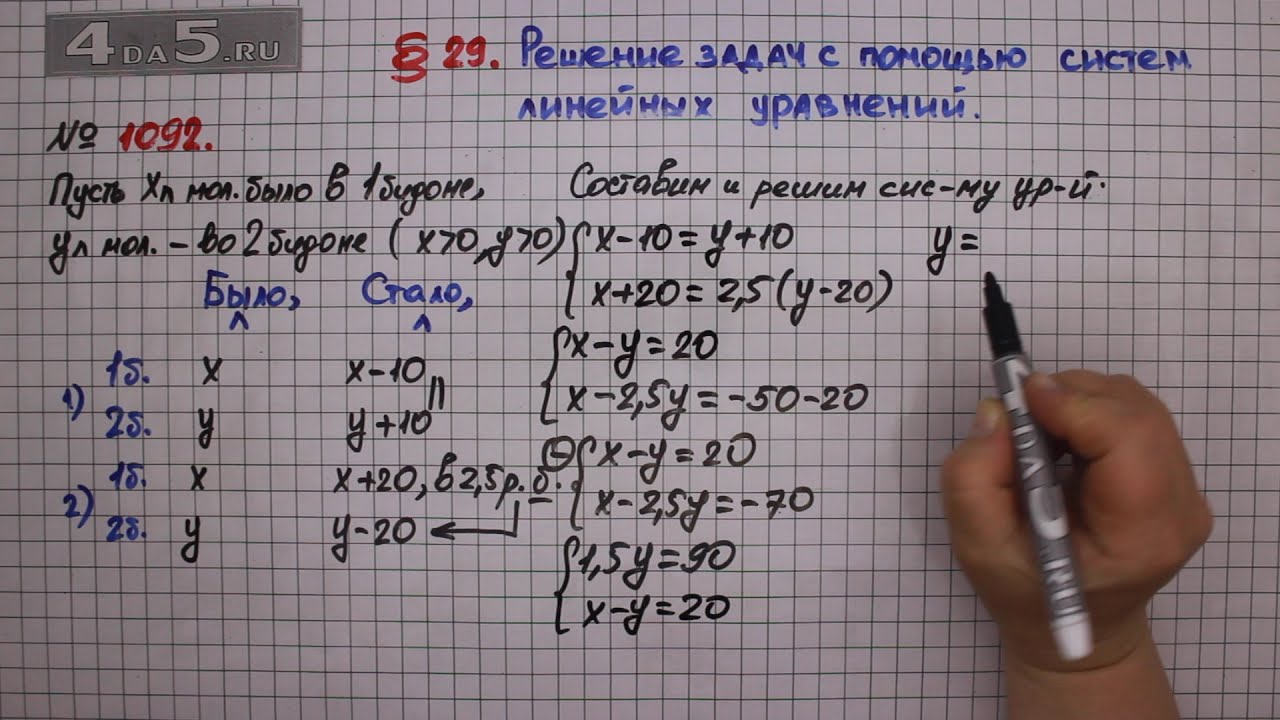 4DA5.RU
§ 29. Решение задач с помощью систем
линейных уравнений.
№ 1092.
Пусть Xл мол. было в 1бидоне,
yл мол. – во 2бидоне ( x>0, y>0)
Было, Стало,
1)
1б. x x-10
2б. y y+10
2)
1б. x x+20, в 2,5 р. б.
2б. y y-20
Составим и решим сис-му ур-й.
x-10=y+10
x+20=2,5(y-20)
x-y=20
x-2,5y=-50-20
x-y=20
x-2,5y=-70
1,5y=90
x-y=20
y=